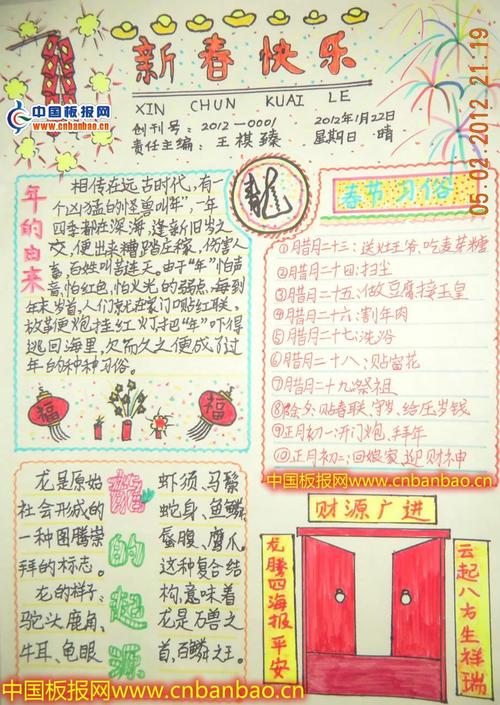 新春快乐
XIN CHUN KUAI LE
创刊号：2012—0001
2012年1月22日
责任主编：王棋臻
星期日 晴
05.02.2012 21:19
中国板报网
www.cnbanbao.cn
年的由来
相传在远古时代，有一
个凶猛的怪兽叫“年”，一年
四季都在深海，逢新旧岁之
交，便出来糟踏庄稼，伤害人
畜，百姓叫苦连天。由于“年”怕声
音，怕红色，怕火光的弱点，每到
年末岁首，人们就在家门口贴红联，
放鞭炮，挂红灯，把“年”吓得
逃回海里，久而久之便成了过
年的种种习俗。
福
福
龍
春节习俗
①月腊月二十三：送灶王爷、吃麦芽糖
②月腊月二十四：扫尘
③月腊月二十五：做豆腐接玉皇
④月腊月二十六：割年肉
⑤月腊月二十七：洗浴
⑥月腊月二十八：贴窗花
⑦月腊月二十九：祭祖
⑧除夕：贴春联、守岁、给压岁钱
⑨正月初一：开门炮、拜年
⑩正月初二：回娘家、迎财神
中国板报网www.cnbanbao.cn
龍的起源
龙是原始
社会形成的
一种图腾崇
拜的标志。
龙的样子：
驼头、鹿角、
牛耳、龟眼
虾须、马鬃
蛇身、鱼鳞
蜃腹、鹰爪。
这种复合结
构，意味着
龙是万兽之
首，百鳞之王。
财源广进
龙腾四海报平安
云起八方生祥瑞
中国板报网www.cnbanbao.cn